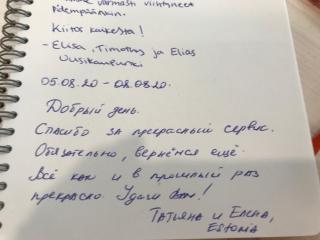 varmasti viihtyneet
pidempäänkin.
Kiitos kaikesta!
- Elisa, Timothy ja Elias
Uusikaupunki
05.08.20 - 08.08.20.
Добрый день.
Спасибо за прекрасный сервис.
Обязательно, вернёмся ещё.
Всё как и в прошлый раз
прекрасно. Удачи Вам!
Татьяна и Елена,
Estonia